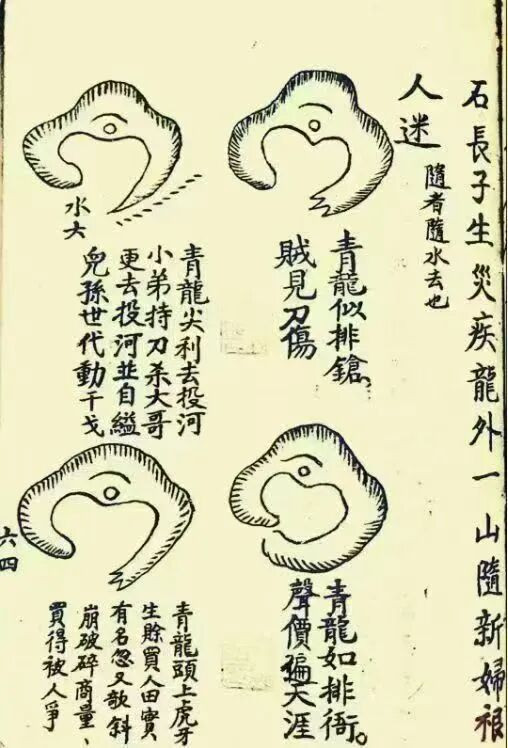 石長子生災疾龍外一山隨新婦根
人迷
隨者隨水去也
青龍似排鎗。
賊見刀傷
水大
青龍尖利去投河
小弟持刀杀大哥
更去投河並自縊
兒孫世代動干戈
青龍如排衙。
聲價遍天涯
青龍頭上虎牙
生賒買人田實
有名忽又欹斜
崩破碎商量、
買得被人爭
六四